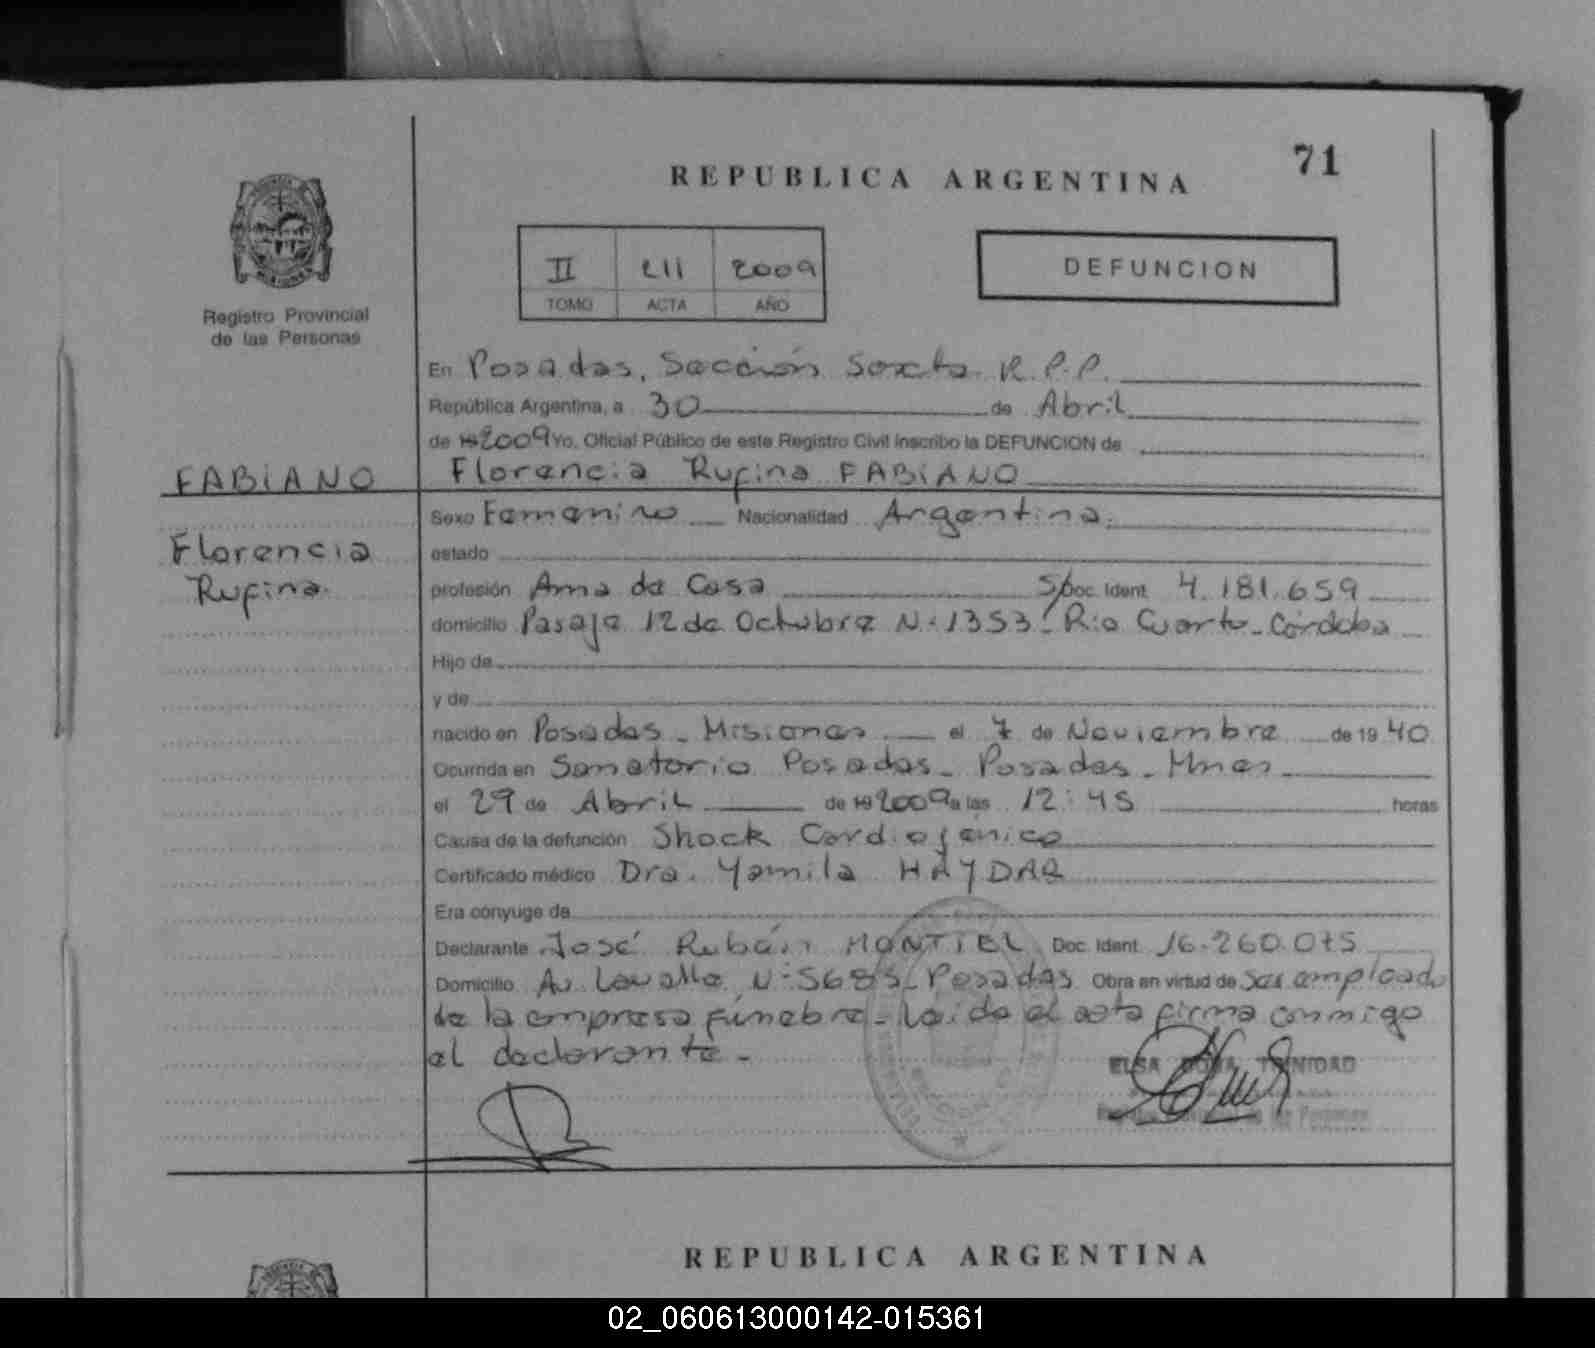 71
REPUBLICA ARGENTINA
II 211 2009
TOMO ACTA AÑO
DEFUNCION
Registro Provincial
de las Personas
En Posadas, Sección Sexta R.P.P.
República Argentina, a 30 de Abril
de 19 2009 Yo, Oficial Público de este Registro Civil inscribo la DEFUNCION de
FABIANO Florencia Rufina FABIANO
Sexo Femenino Nacionalidad Argentina.
Florencia estado
Rufina. profesión Ama de Casa S/Doc. Ident. 4.181.659
domicilio Pasaje 12 de Octubre N: 1353 - Rio Cuarto - Córdoba
Hijo de
y de
nacido en Posadas - Misiones el 7 de Noviembre de 19 40
Ocurrida en Sanatorio Posadas - Posadas - Mnes
el 29 de Abril de 19 2009 a las 12:45 horas
Causa de la defunción Shock Cardiogénico
Certificado médico Dra. Yamila HAYDAR
Era cónyuge de
Declarante José Rubén MONTIEL Doc. Ident. 16.260.075
Domicilio Av. Lavalle N: 5685 - Posadas Obra en virtud de ser empleado
de la empresa fúnebre - Leida el acta firma conmigo
el declarante -
ELSA TRINIDAD
de las Personas
REPUBLICA ARGENTINA
02_060613000142-015361